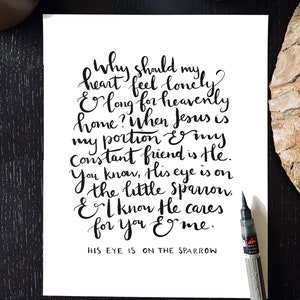 Why should my
heart feel lonely?
& long for heavenly
home? When Jesus is
my portion & my
constant friend is He.
You know, His eye is on
the little sparrow,
& I know He cares
for You & me.
HIS EYE IS ON THE SPARROW